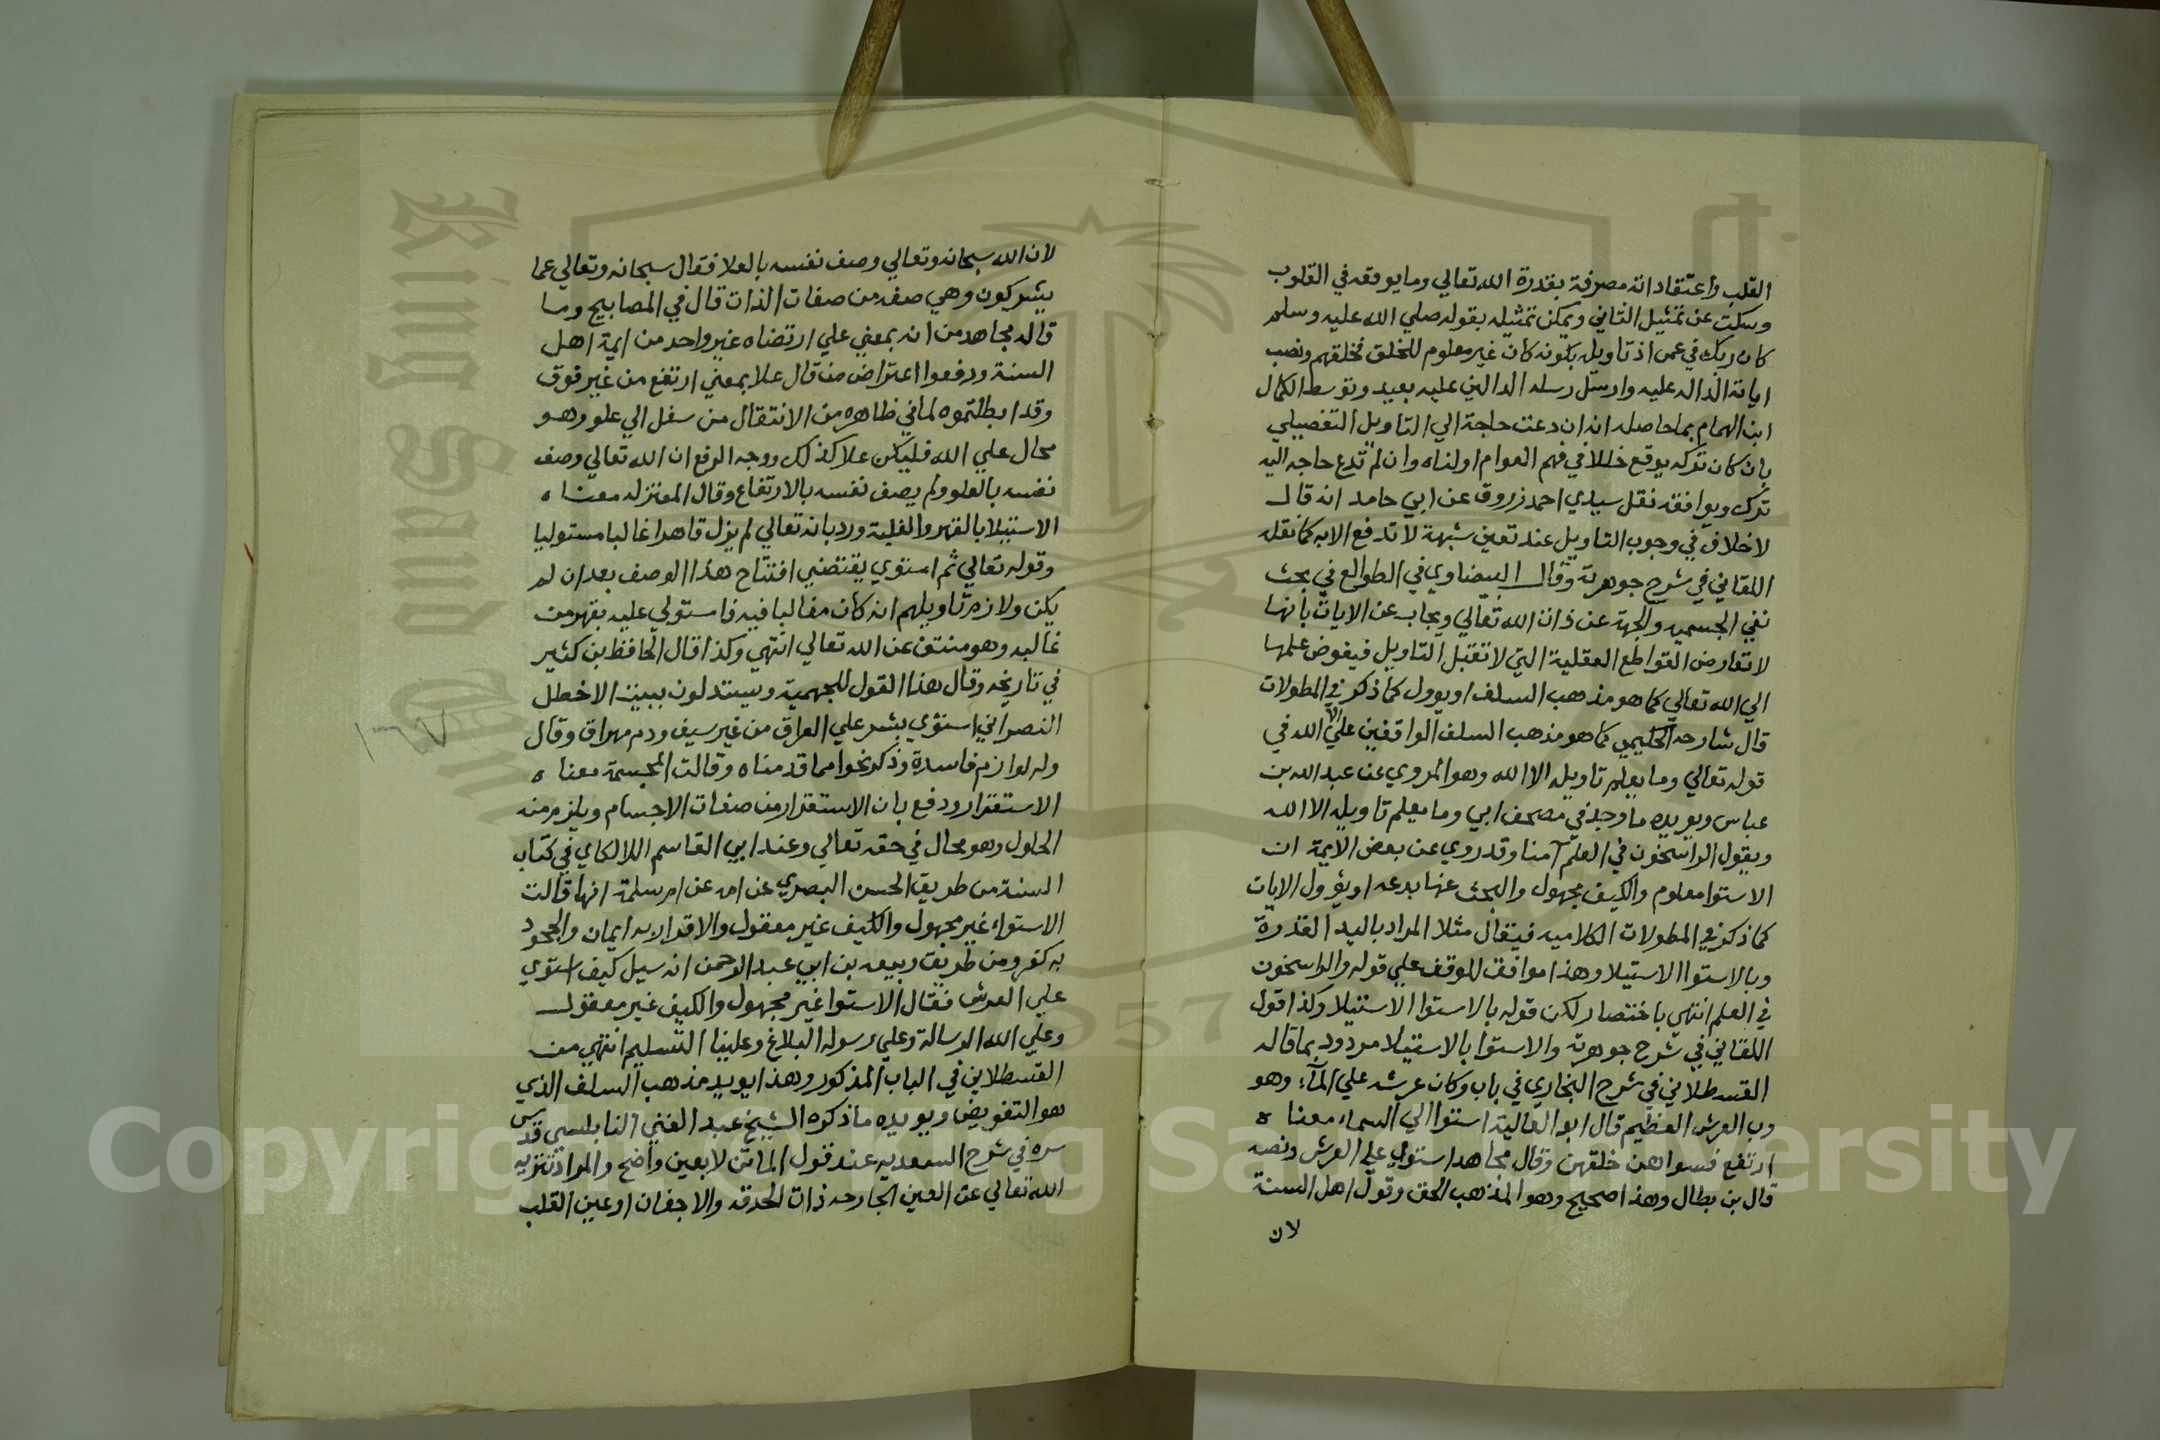 القلب واعتقاد انه مصرفة بقدرة الله تعالي وما يوقعه في القلوب
وسكت عن تمثيل الثاني ويمكن تمثيله بقوله صلي الله عليه وسلم
كان ربك في عمي اذ تاويله بكونه كان غير معلوم للخلق فخلقهم ونصب
اياته الدالة عليه وارسل رسله الدالين عليه بعيد وتوسط الكمال
ابن الهمام بما حاصله انه ان دعت حاجة الي التاويل التفصيلي
بان كان تركه يوقع خللا في فهم العوام اولناه وان لم تدع حاجه اليه
ترك ويوافقه نقل سيدي احمد زروق عن ابي حامد انه قال
لا خلاف في وجوب التاويل عند تعين شبهة لا تدفع الا به كما نقله
اللقاني في شرح جوهرته وقال البيضاوي في الطوالع في بحث
نفي الجسميه والجهة عن ذات الله تعالي ويجاب عن الايات بانها
لا تعارض القواطع العقلية التي لا تقبل التاويل فيفوض علمها
الي الله تعالي كما هو مذهب السلف او يوول كما ذكر في المطولات
قال شارحه الحكيمي كما هو مذهب السلف الواقفين علي الا الله في
قوله تعالي وما يعلم تاويله الا الله وهو المروي عن عبد الله بن
عباس ويويده ما وجد في مصحف ابي وما يعلم تاويله الا الله
ويقول الراسخون في العلم آمنا وقد روي عن بعض الايمة ان
الاستوا معلوم والكيف مجهول والبحث عنها بدعه او يؤول الايات
كما ذكر في المطولات الكلاميه فيقال مثلا المراد باليد القدرة
وبالاستوا الاستيلا وهذا موافق للوقف علي قوله والراسخون
في العلم انتهي باختصار لكن قوله بالاستوا الاستيلا وكذا قول
اللقاني في شرح جوهرته والاستوا بالاستيلا مردود بما قاله
القسطلاني في شرح البخاري في باب وكان عرشه علي المآء وهو
رب العرش العظيم قال ابو العالية استوا الي السماء معناه
ارتفع فسواهن خلقهن وقال مجاهد استوي علي العرش ونصه
قال بن بطال وهذا صحيح وهو المذهب الحق وقول اهل السنة
لان
لان الله سبحانه وتعالي وصف نفسه بالعلا فقال سبحانه وتعالي عما
يشركون وهي صفة من صفات الذات قال في المصابيح وما
قاله مجاهد من انه بمعني علي ارتضاه غير واحد من ايمة اهل
السنة ودفعوا اعتراض من قال علا بمعني ارتفع من غير فوق
وقد ابطلتموه لما في ظاهره من الانتقال من سفل الي علو وهو
محال علي الله فليكن علا كذلك ووجه الرفع ان الله تعالي وصف
نفسه بالعلو ولم يصف نفسه بالارتفاع وقال المعتزله معناه
الاستيلا بالقهر والغلبة ورد بانه تعالي لم يزل قاهرا غالبا مستوليا
وقوله تعالي ثم استوي يقتضي افتتاح هذا الوصف بعد ان لم
يكن ولازم تاويلهم انه كان مغالبا فيه فاستولي عليه بقهر من
غالبه وهو منتف عن الله تعالي انتهي وكذا قال الحافظ بن كثير
في تاريخه وقال هذا القول للجهمية ويستدلون ببيت الاخطل
النصراني استوي بشر علي العراق من غير سيف ودم مهراق وقال
وله لوازم فاسدة وذكر نحوا مما قدمناه وقالت المجسمة معناه
الاستقرار ودفع بان الاستقرار من صفات الاجسام ويلزم منه
الحلول وهو محال في حقه تعالي وعند ابي القاسم اللالكاي في كتاب
السنة من طريق الحسن البصري عن امه عن ام سلمة انها قالت
الاستواء غير مجهول والكيف غير معقول والاقرار به ايمان والجحود
به كفر ومن طريق ربيعه بن ابي عبد الرحمن انه سيل كيف استوي
علي العرش فقال الاستوا غير مجهول والكيف غير معقول
وعلي الله الرسالة وعلي رسوله البلاغ وعلينا التسليم انتهي من
القسطلاني في الباب المذكور وهذا يويد مذهب السلف الذي
هو التفويض ويويده ما ذكره الشيخ عبد الغني النابلسي قدس
سره في شرح السعديه عند قول الماتن لا بعين واضح والمراد تنزيه
الله تعالي عن العين الجارحه ذات الحدقه والاجفان او عين القلب
١٦٧
Copyright © King Saud University
King Saud University
1957